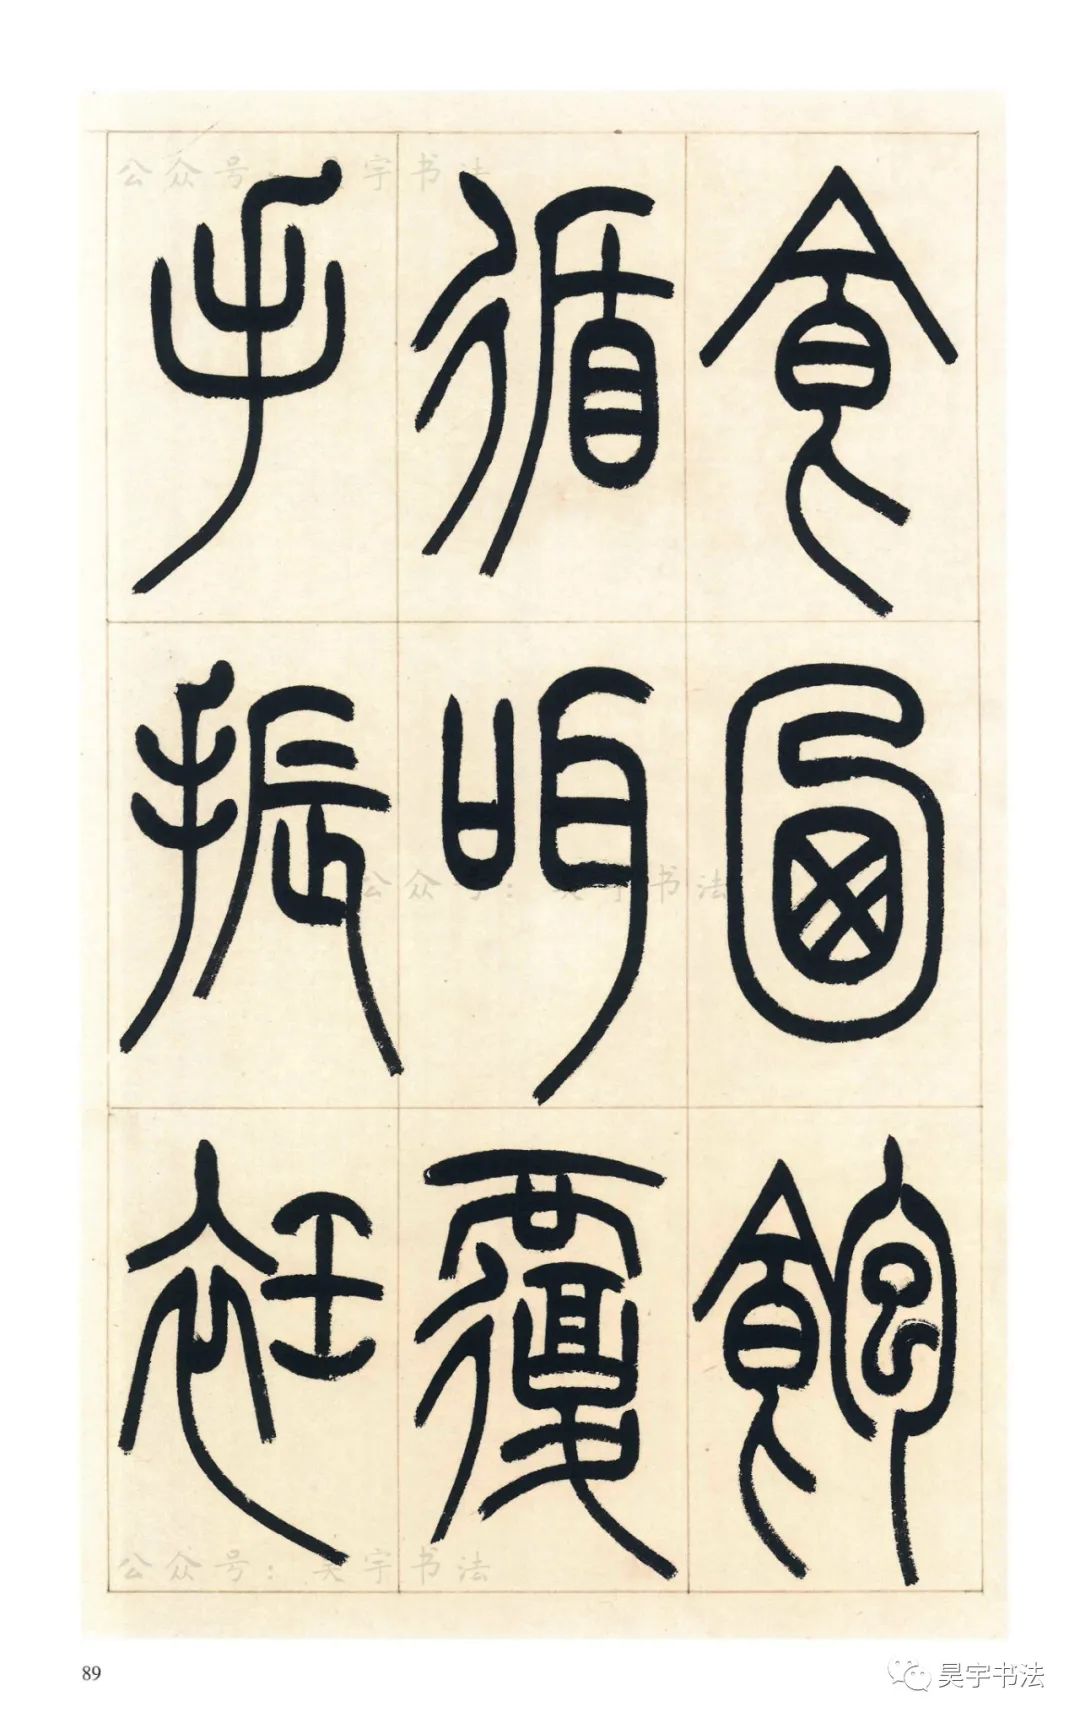 食迺飽
循咡覆
手振衽
公众号：昊宇书法
公众号：昊宇书法
公众号：昊宇书法
89
昊宇书法